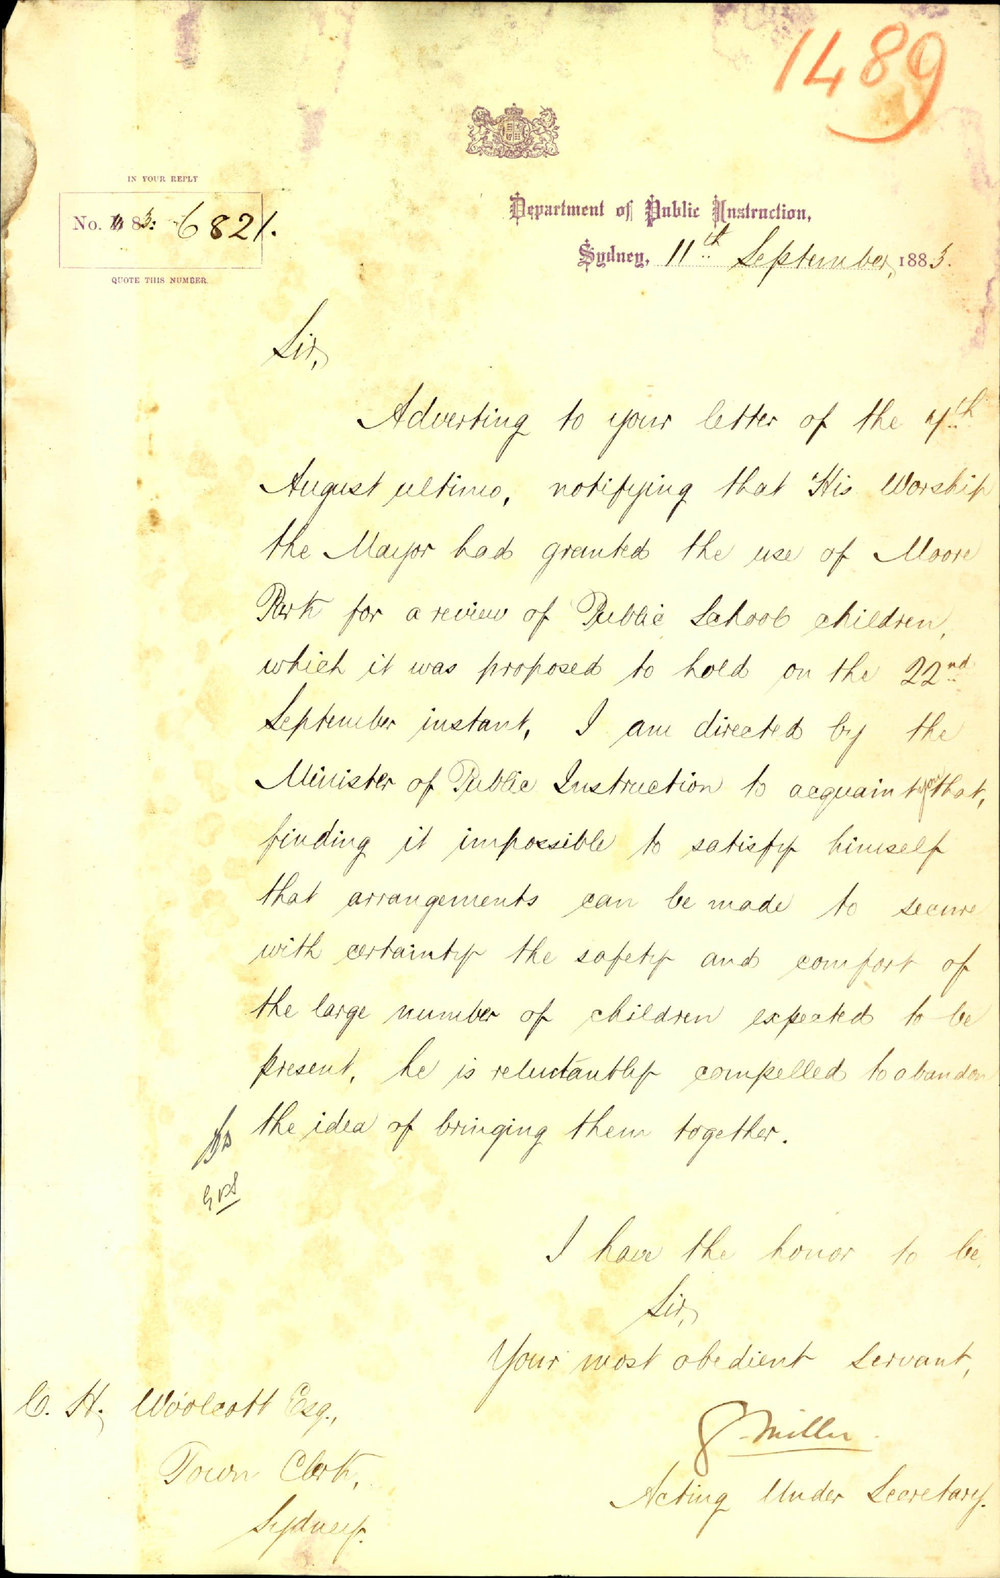 1489
IN YOUR REPLY
No. 83: 6821.
QUOTE THIS NUMBER.
Department of Public Instruction,
Sydney, 11th September, 1883.
Sir,
Adverting to your letter of the 7th
August ultimo, notifying that His Worship
the Mayor had granted the use of Moore
Park for a review of Public School children,
which it was proposed to hold on the 22nd
September instant, I am directed by the
Minister of Public Instruction to acquaint you that,
finding it impossible to satisfy himself
that arrangements can be made to secure
with certainty the safety and comfort of
the large number of children expected to be
present, he is reluctantly compelled to abandon
the idea of bringing them together.
I have the honor to be,
Sir,
Your most obedient servant,
Miller
Acting Under Secretary.
C. H. Woolcott Esq.,
Town Clerk,
Sydney.